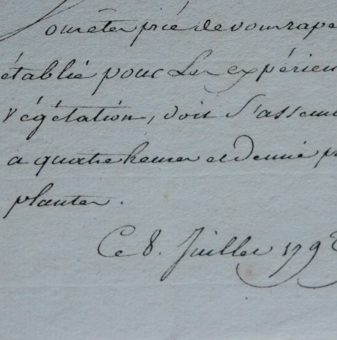 Vous êtes prié de vous rape
établie pour les expérien
végétation, doit s'assem
a quatre heures et demie p
plantes.
Ce 8. Juillet 179